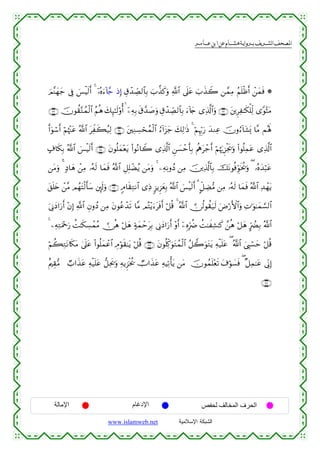 المصحف الشريف برواية هشام عن ابن عامر
* فَمَنْ أَظْلَمُ مِمَّن كَذَبَ عَلَى اللَّهِ وَكَذَّبَ بِالصِّدْقِ إِذ جَّآءَهُۥٓ ۚ أَلَيْسَ فِى جَهَنَّمَ
مَثْوًى لِّلْكَٰفِرِينَ وَالَّذِى جَآءَ بِالصِّدْقِ وَصَدَّقَ بِهِۦٓ ۙ أُوْلَٰٓئِكَ هُمُ الْمُتَّقُونَ
لَهُم مَّا يَشَآءُونَ عِندَ رَبِّهِمْ ۚ ذَٰلِكَ جَزَآءُ الْمُحْسِنِينَ لِيُكَفِّرَ اللَّهُ عَنْهُمْ أَسْوَأَ
الَّذِى عَمِلُوا۟ وَيَجْزِيَهُمْ أَجْرَهُم بِأَحْسَنِ الَّذِى كَانُوا۟ يَعْمَلُونَ أَلَيْسَ اللَّهُ بِكَافٍ
عَبْدَهُۥ ۖ وَيُخَوِّفُونَكَ بِالَّذِينَ مِن دُونِهِۦ ۚ وَمَن يُضْلِلِ اللَّهُ فَمَا لَهُۥ مِنْ هَادٍ وَمَن
يَهْدِ اللَّهُ فَمَا لَهُۥ مِن مُّضِلٍّ ۗ أَلَيْسَ اللَّهُ بِعَزِيزٍ ذِى انتِقَامٍ وَلَئِن سَأَلْتَهُم مَّنْ خَلَقَ
السَّمَٰوَٰتِ وَالْأَرْضَ لَيَقُولُنَّ اللَّهُ ۚ قُلْ أَفَرَءَيْتُم مَّا تَدْعُونَ مِن دُونِ اللَّهِ إِنْ أَرَادَنِىَ
اللَّهُ بِضُرٍّ هَلْ هُنَّ كَٰشِفَٰتُ ضُرِّهِۦٓ أَوْ أَرَادَنِى بِرَحْمَةٍ هَلْ هُنَّ مُمْسِكَٰتُ رَحْمَتِهِۦ ۚ
قُلْ حَسْبِىَ اللَّهُ ۖ عَلَيْهِ يَتَوَكَّلُ الْمُتَوَكِّلُونَ قُلْ يَٰقَوْمِ اعْمَلُوا۟ عَلَىٰ مَكَانَتِكُمْ
إِنِّى عَٰمِلٌ ۖ فَسَوْفَ تَعْلَمُونَ مَن يَأْتِيهِ عَذَابٌ يُخْزِيهِ وَيَحِلُّ عَلَيْهِ عَذَابٌ مُّقِيمٌ
الحرف المخالف لحفص الإدغام الإمالة
www.islamweb.net الشبكة الإسلامية